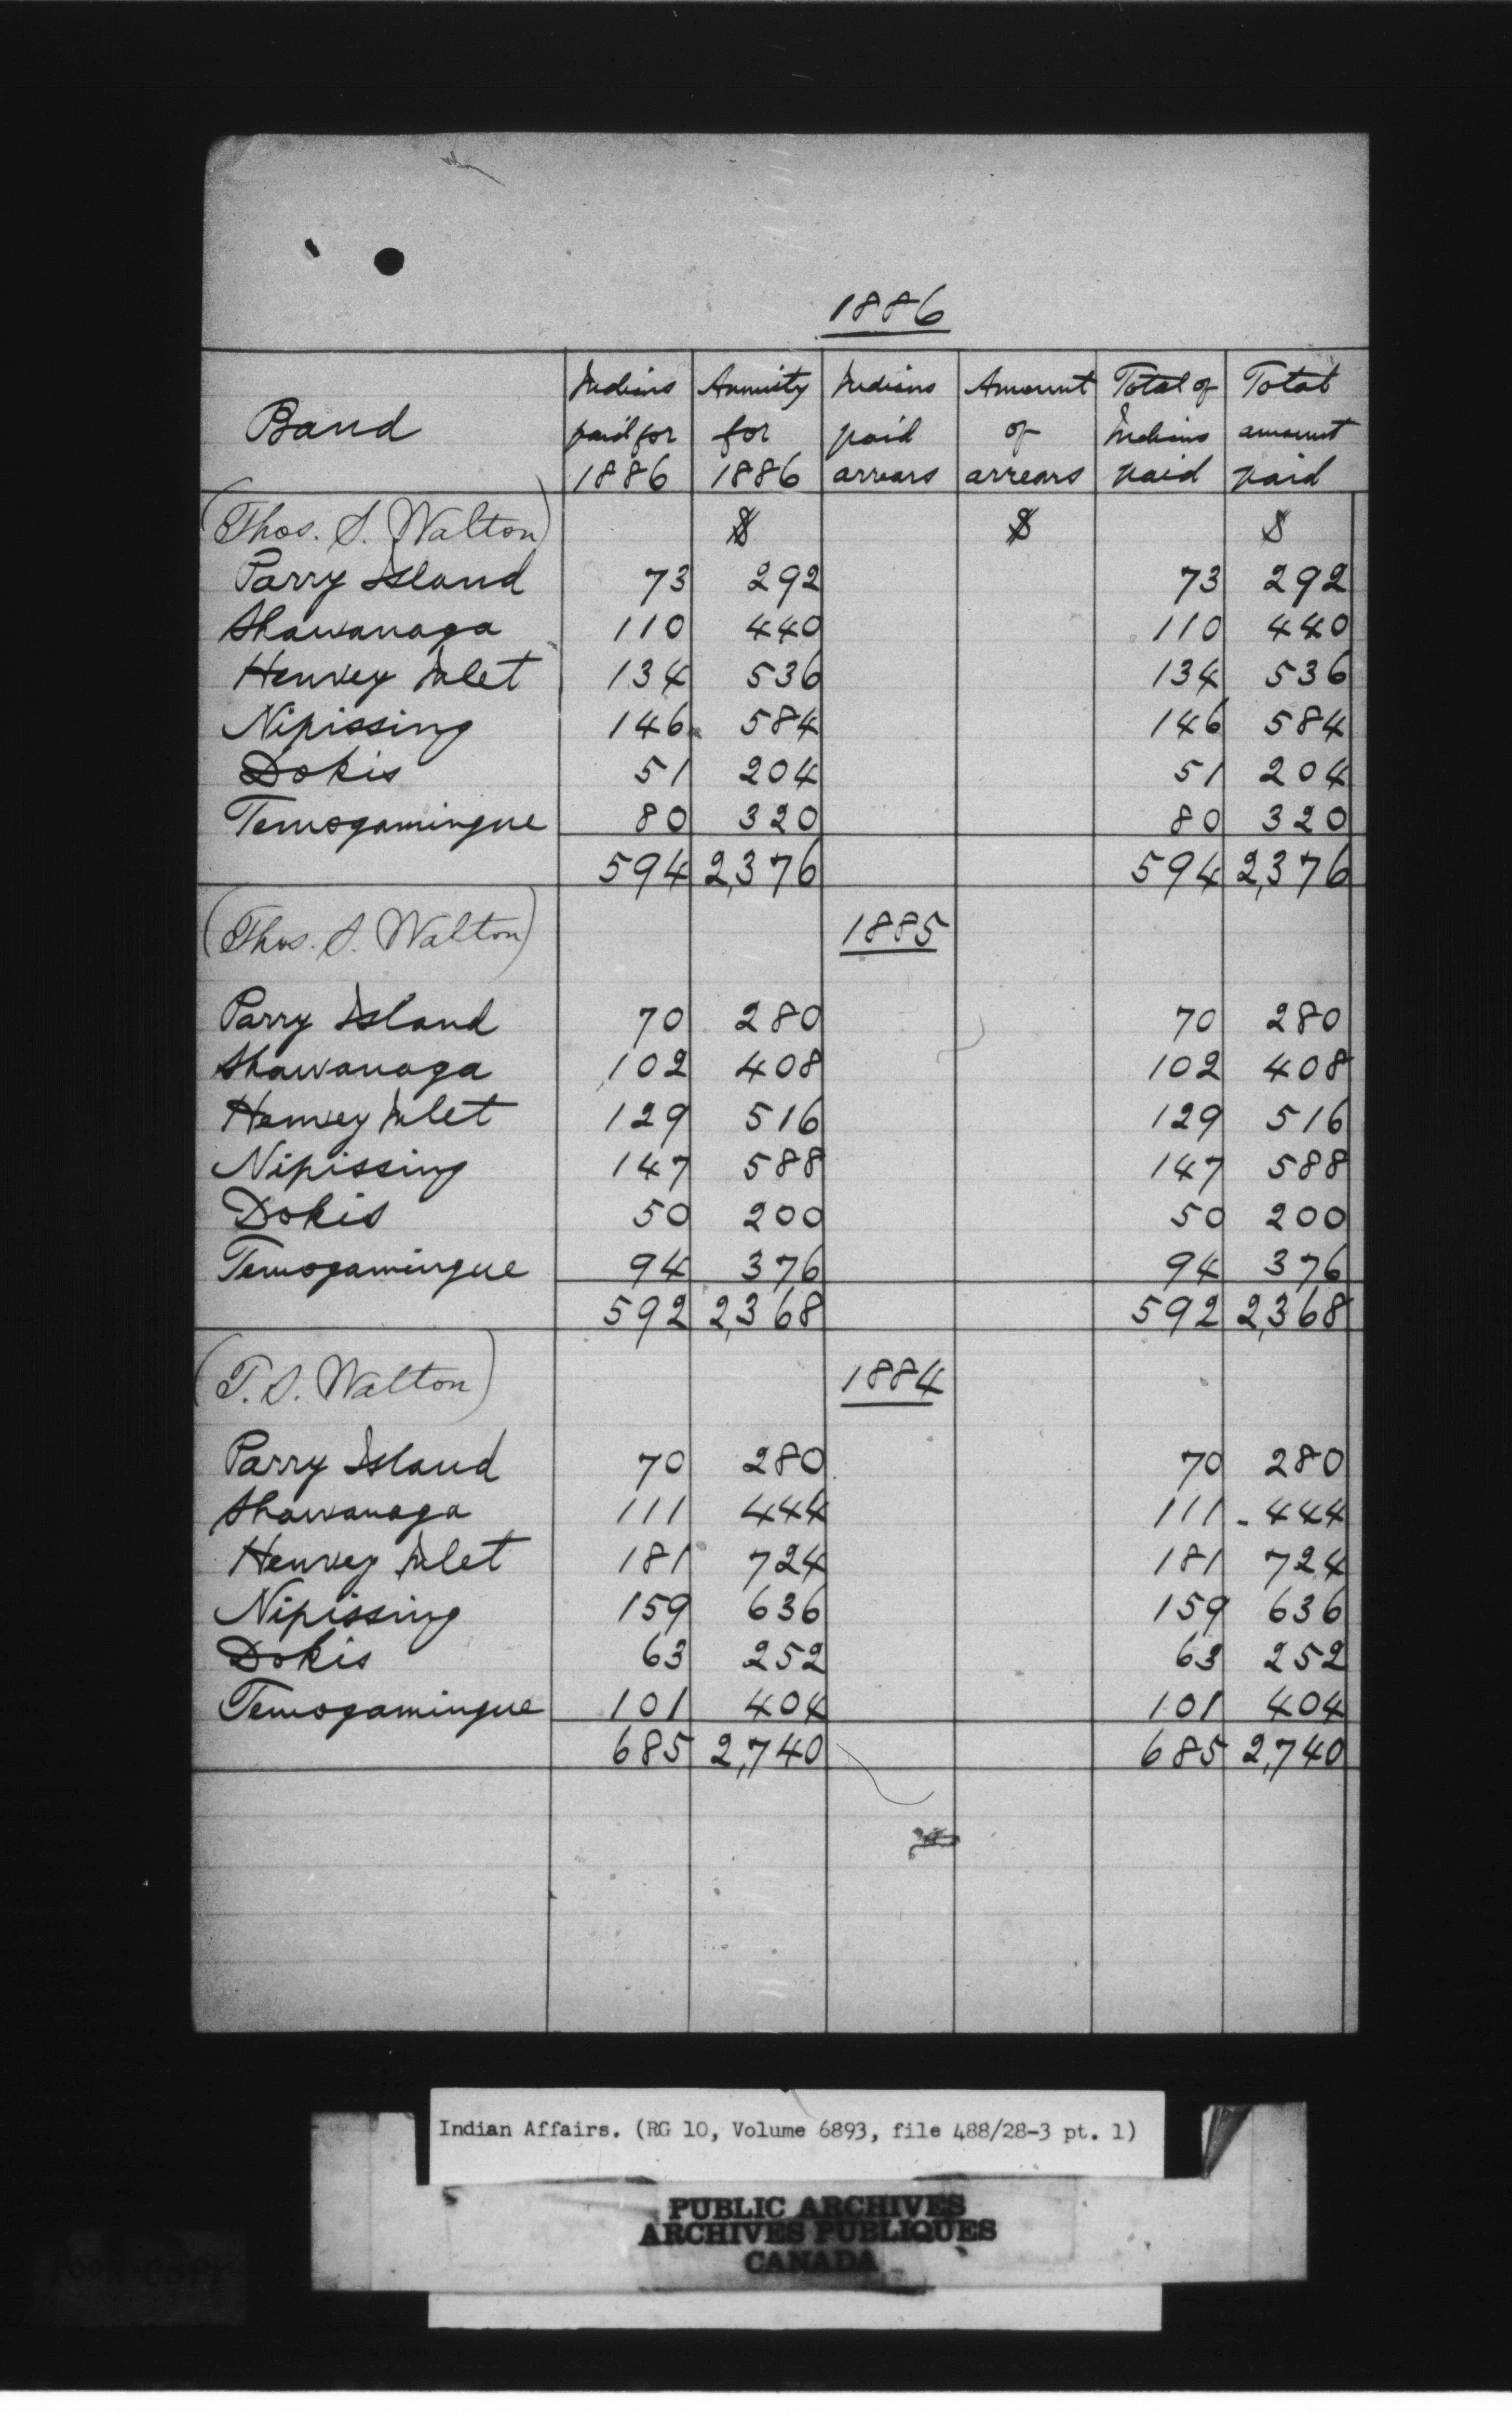 1886
Band | Indians paid for 1886 | Annuity for 1886 | Indians paid arrears | Amount of arrears | Total of Indians paid | Total amount paid
(Thos. S. Walton) $ $ $
Parry Island 73 292 73 292
Shawanaga 110 440 110 440
Henvey Inlet 134 536 134 536
Nipissing 146 584 146 584
Dokis 51 204 51 204
Temogamingue 80 320 80 320
594 2,376 594 2,376
(Thos. S. Walton) 1885
Parry Island 70 280 70 280
Shawanaga 102 408 102 408
Henvey Inlet 129 516 129 516
Nipissing 147 588 147 588
Dokis 50 200 50 200
Temogamingue 94 376 94 376
592 2,368 592 2,368
(T. S. Walton) 1884
Parry Island 70 280 70 280
Shawanaga 111 444 111 444
Henvey Inlet 181 724 181 724
Nipissing 159 636 159 636
Dokis 63 252 63 252
Temogamingue 101 404 101 404
685 2,740 685 2,740
Indian Affairs. (RG 10, Volume 6893, file 488/28-3 pt. 1)
PUBLIC ARCHIVES
ARCHIVES PUBLIQUES
CANADA
POOR COPY